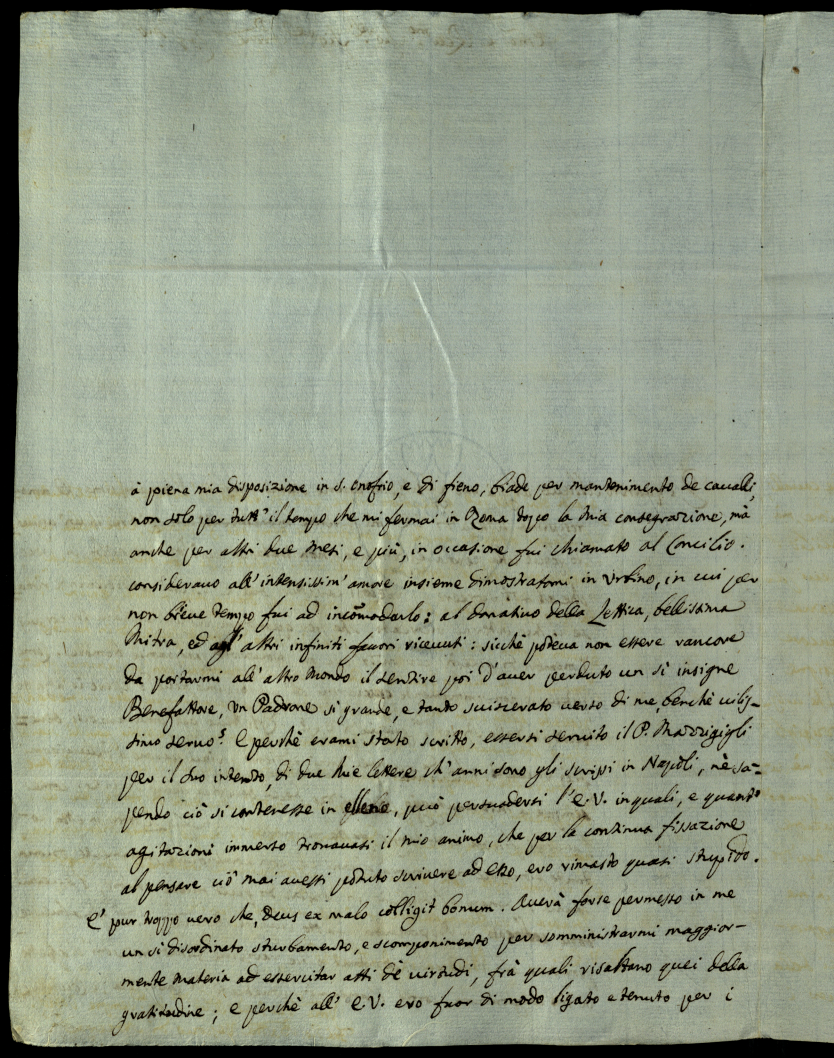 à piena mia disposizione in S. Onofrio, e di fieno, biade per mantenimento de cavalli,
non solo per tutt'il tempo che mi fermai in Roma dopo la mia consegrazione, mà
anche per altri due mesi, e più, in occasione fui chiamato al Concilio.
consideravo all'intensissim'amore insieme dimostratomi in Urbino, in cui per
non brieve tempo fui ad incõmodarlo: al donativo della Lettica, bellissima
Mitra, ed agl'altri infiniti favori ricevuti: sicchè poteva non essere rancore
da portarmi all'altro Mondo il sentire poi d'aver perduto un sì insigne
Benefattore, un Padrone sì grande, e tanto sviscerato verso di me, benchè vilis-
simo servo? E perchè erami stato scritto, essersi servito il P. Mazzigigli
per il suo intento, di due mie lettere ch'anni sono gli scrissi in Napoli, nè sa-
pendo ciò si contenesse in esse, può persuadersi l'E.V. in quali, e quant'
agitazioni immerso trovavasi il mio animo, che per la continua fissazione
al pensare ciò mai avessi potuto scrivere ad esso, ero rimasto quasi stupido.
E' pur troppo vero che, Deus ex malo colligit bonum. Averà forse permesso in me
un sì disordinato sturbamento, e scomponimento per somministrarmi maggior-
mente materia ad essercitar atti dè virtudi, frà quali risaltano quei della
gratitudine; e perchè all' E.V. ero fuor di modo ligato e tenuto per i